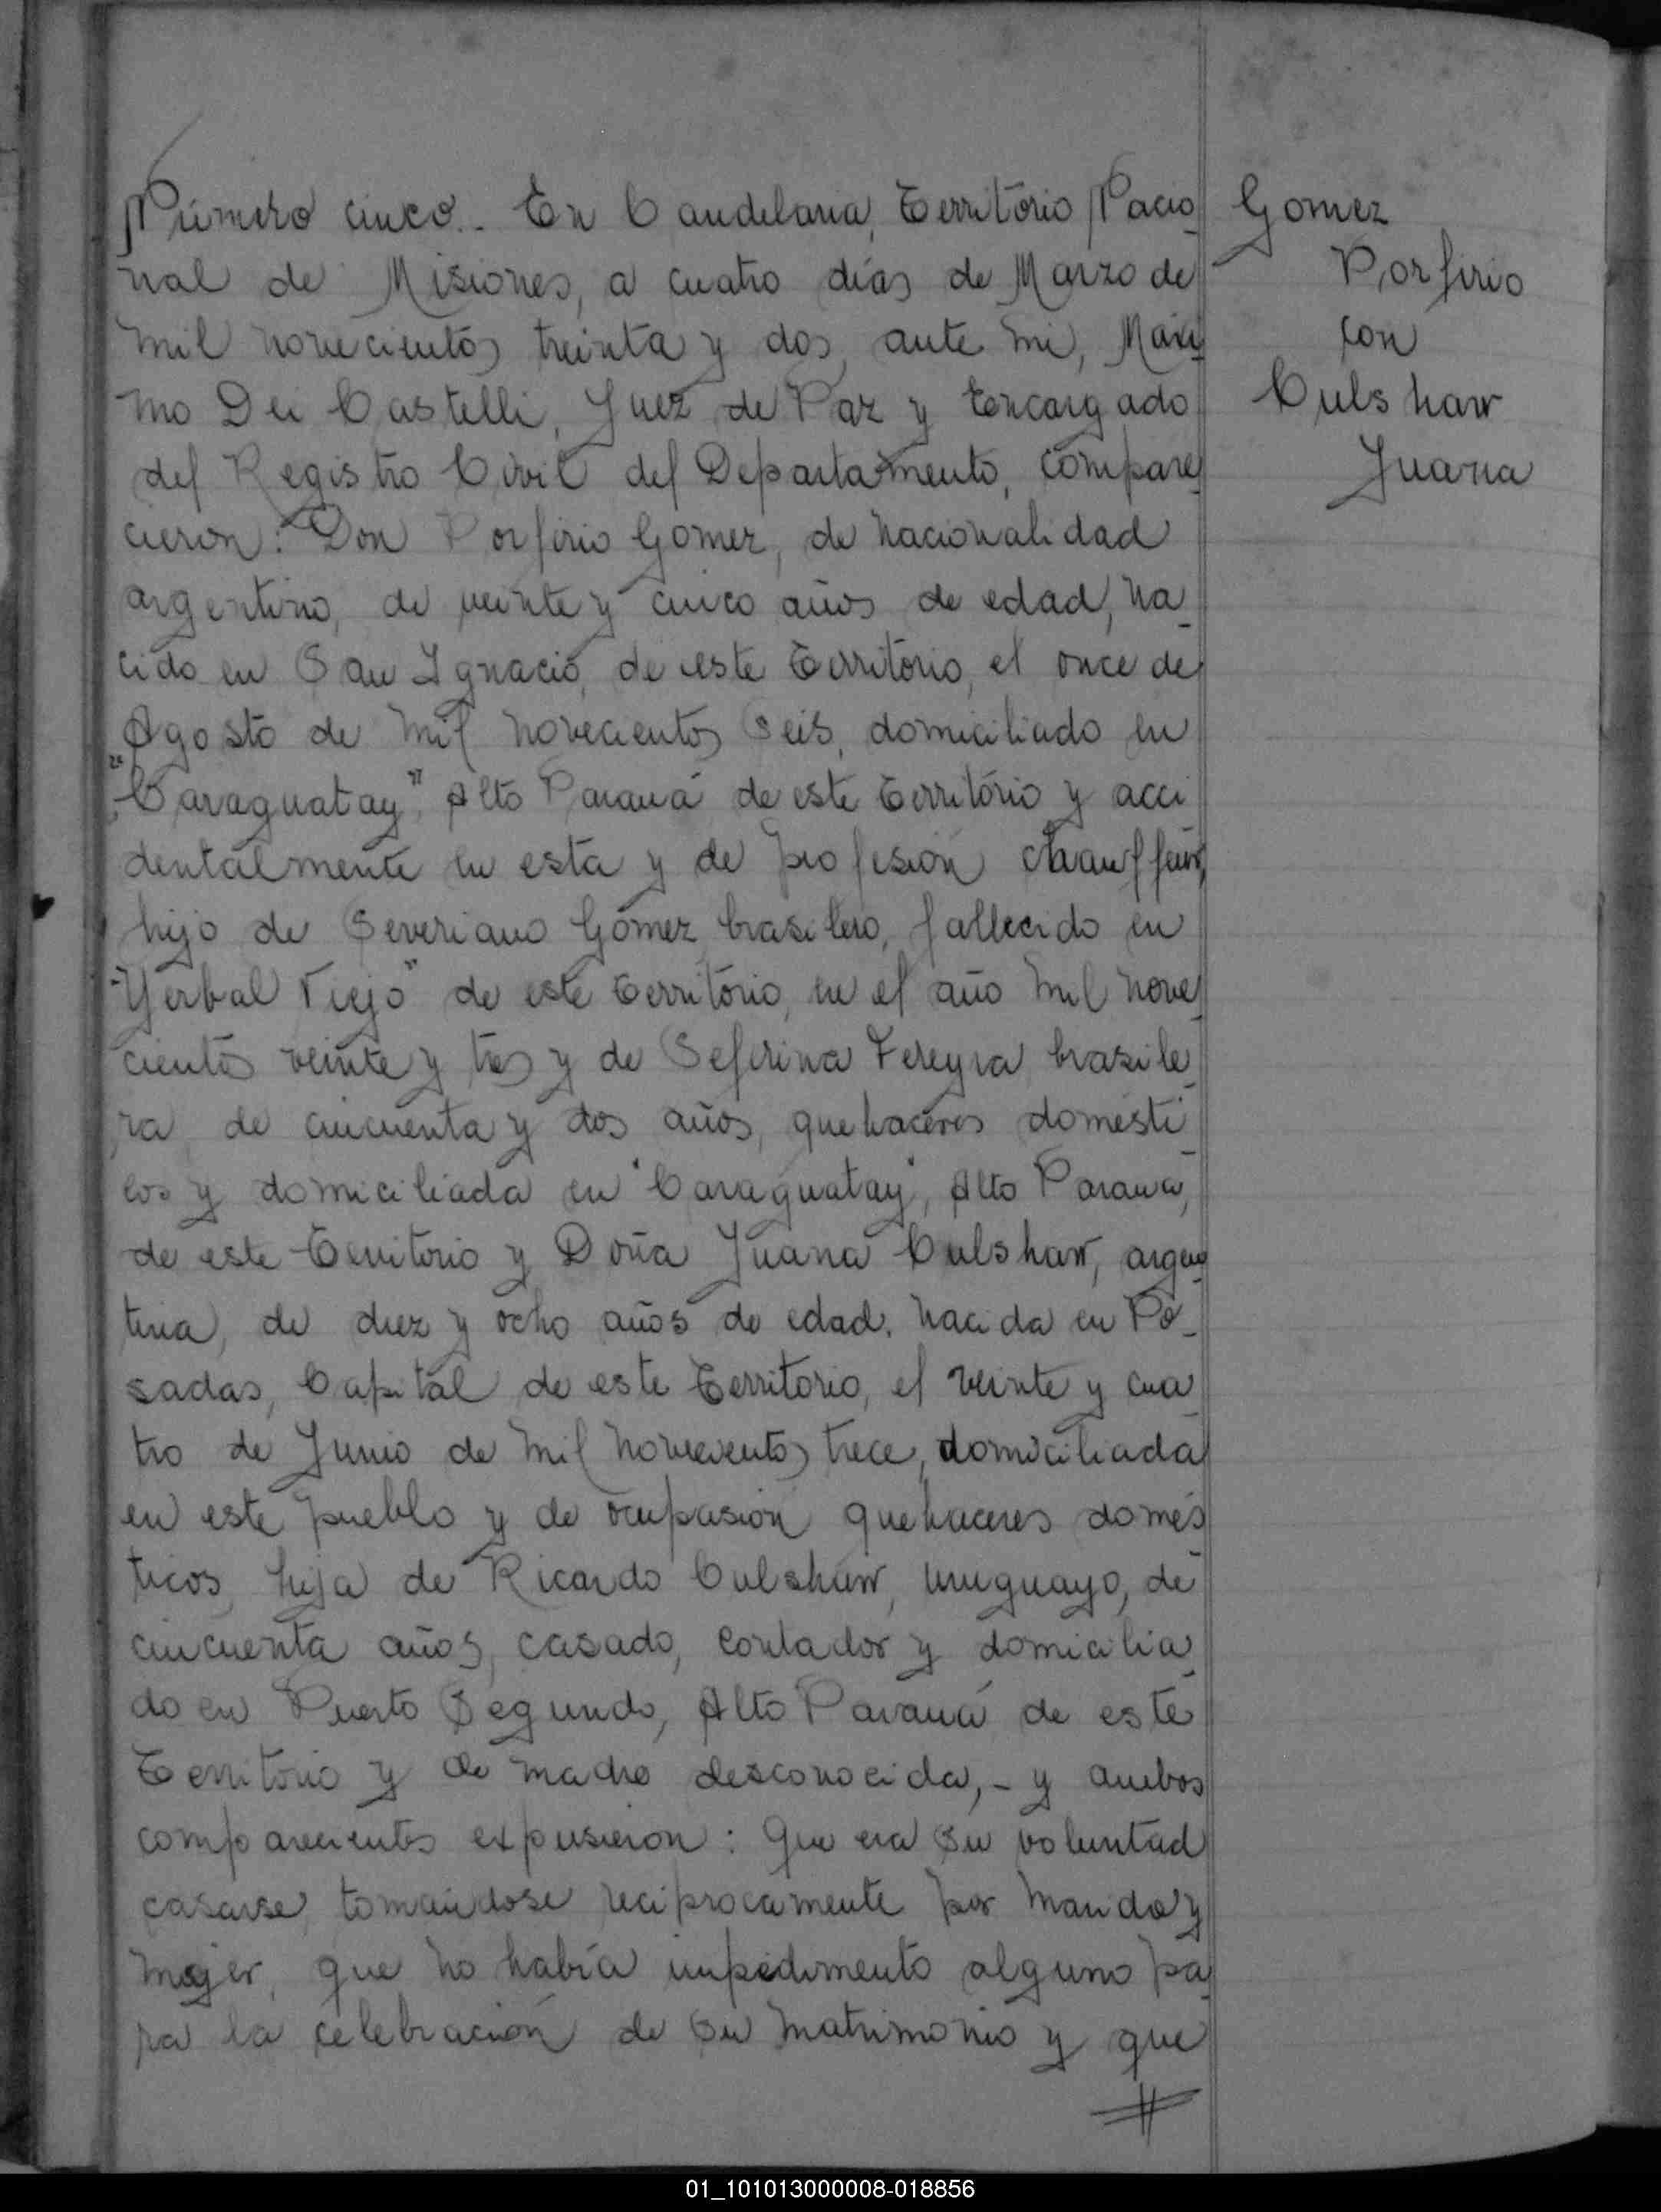 Número cinco.. En Candelaria, Territorio Nacio
nal de Misiones, a cuatro días de Marzo de
mil novecientos treinta y dos, ante mi, Maxi
mo Dei Castelli, Juez de Paz y Encargado
del Registro Civil del Departamento, compare
cieron: Don Porfirio Gomez, de nacionalidad
argentino, de veinte y cinco años de edad, na
cido en San Ignacio, de este Territorio, el once de
Agosto de mil novecientos seis, domiciliado en
"Caraguatay", Alto Paraná de este Territorio y acci
dentalmente en esta y de profesión chauffeur,
hijo de Severiano Gómez, brasilero, fallecido en
"Yerbal Viejo" de este Territorio, en el año mil nove
cientos veinte y tres y de Seferina Fereyra, brasile
ra, de cincuenta y dos años, quehaceres domésti
cos y domiciliada en "Caraguatay", Alto Paraná,
de este Territorio y Doña Juana Culshaw, argen
tina, de diez y ocho años de edad, nacida en Po
sadas, Capital de este Territorio, el veinte y cua
tro de Junio de mil novecientos trece, domiciliada
en este pueblo y de ocupasión quehaceres domés
ticos, hija de Ricardo Culshaw, uruguayo, de
cincuenta años, casado, contador y domicilia
do en Puerto Segundo, Alto Paraná de este
Territorio y de madre desconocida,- y ambos
comparecientes expusieron: Que era su voluntad
casarse, tomándose reciprocamente por marido y
mujer, que no había impedimento alguno pa
ra la celebración de su matrimonio y que
Gomez
Porfirio
con
Culshaw
Juana
01_101013000008-018856